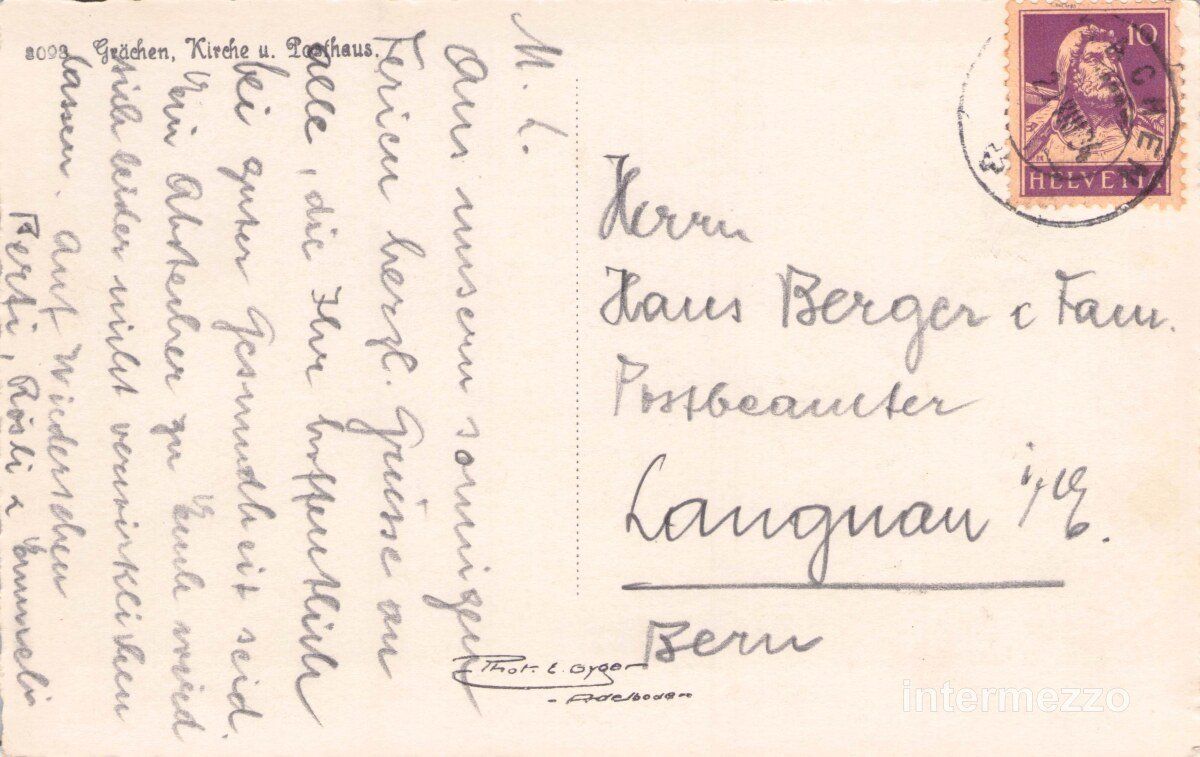 8093 Grächen, Kirche u. Posthaus.
M. L.
Aus unsern sonnigen
Ferien herzl. Grüsse an
alle, die Ihr hoffentlich
bei guter Gesundheit seid.
Ein Abstecher zu Euch wird
sich leider nicht verwirklichen
lassen. Auf Wiedersehen
Berti, Rösli &
10
HELVETIA
Herrn
Hans Berger & Fam.
Postbeamter
Langnau i/E.
Bern
Phot. E. Gyger
Adelboden
intermezzo